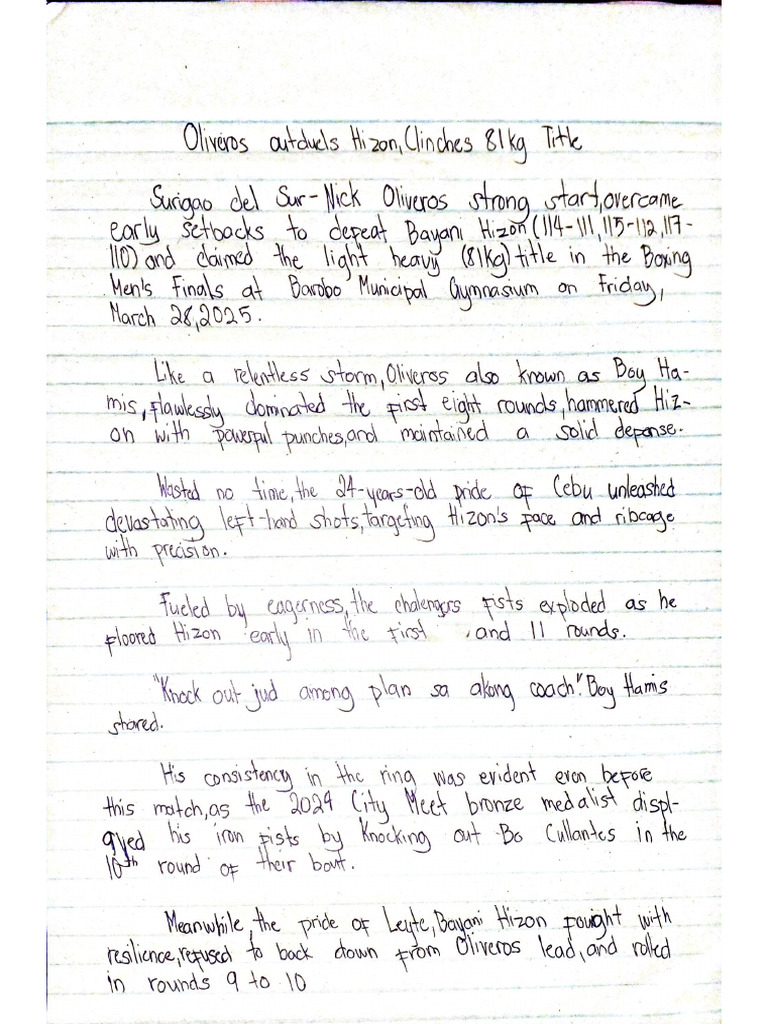 Oliveros outduels Hizon, Clinches 81kg Title
Surigao del Sur-Nick Oliveros strong start, overcame
early setbacks to defeat Bayani Hizon (114-111, 115-112, 117-
110) and claimed the light heavy (81kg) title in the Boxing
Men's Finals at Barobo Municipal Gymnasium on Friday,
March 28, 2025.
Like a relentless storm, Oliveros also known as Boy Ha-
mis, flawlessly dominated the first eight rounds, hammered Hiz-
on with powerful punches, and maintained a solid defense.
Wasted no time, the 24-years-old pride of Cebu unleashed
devastating left-hand shots, targeting Hizon's face and ribcage
with precision.
Fueled by eagerness, the challengers fists exploded as he
floored Hizon early in the first , and 11 rounds.
"Knock out jud among plan sa akong coach". Boy Hamis
shared.
His consistency in the ring was evident even before
this match, as the 2024 City Meet bronze medalist displ-
ayed his iron fists by Knocking out Bo Cullantes in the
10th round of their bout.
Meanwhile, the pride of Leyte, Bayani Hizon fought with
resilience, refused to back down from Oliveros lead, and rolled
in rounds 9 to 10